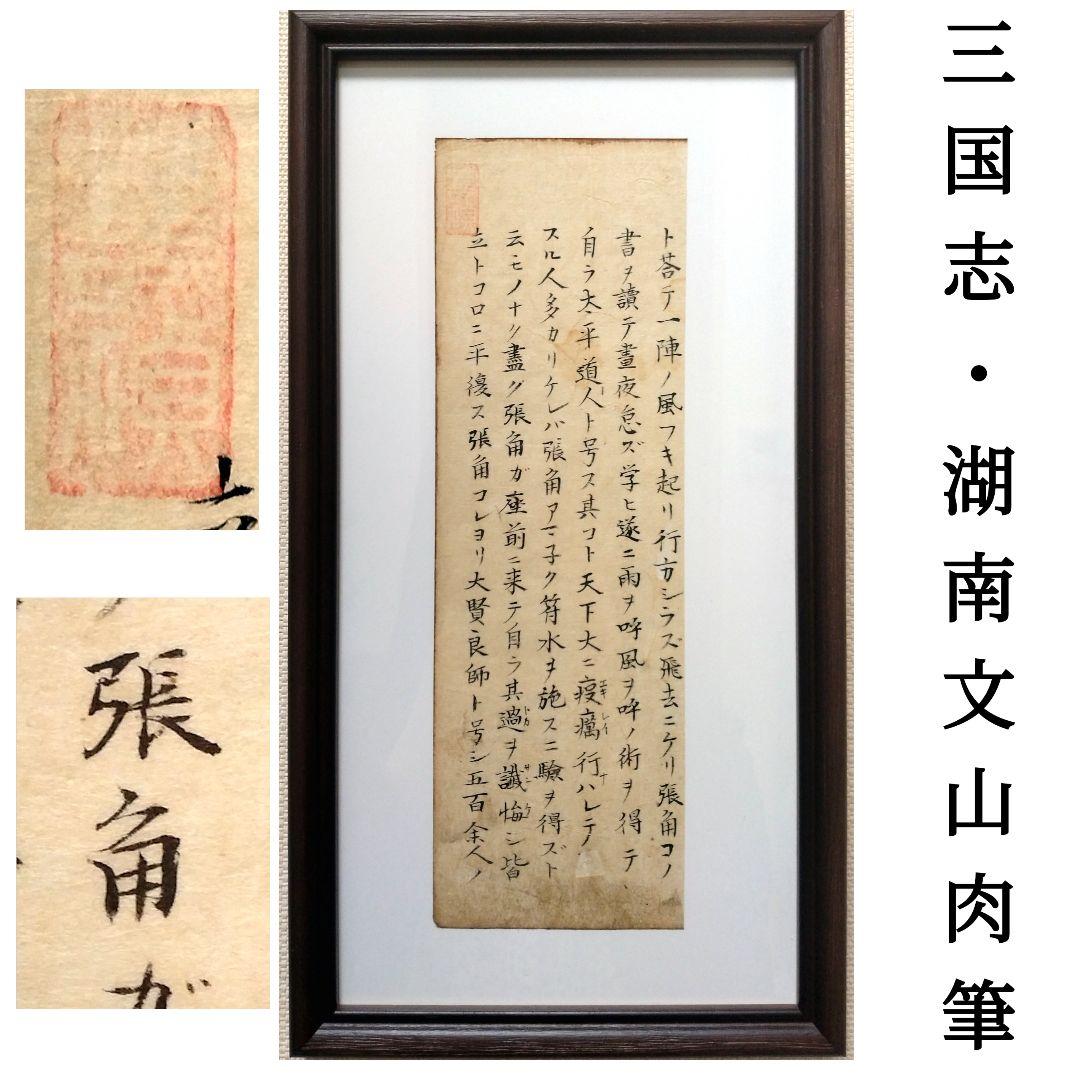 三国志・湖南文山肉筆
ト荅テ一陣ノ風フキ起リ行方シラズ飛去ニケリ張角コノ
書ヲ讀テ晝夜怠ズ学ヒ遂ニ雨ヲ呼風ヲ呼ノ術ヲ得テ、
自ラ太平道人ト号ス其コト天下大ニ疫癘行ハレテ
エキレイ
スル人多カリケレバ張角アマ子ク符水ヲ施スニ驗ヲ得ズト
云モノナク盡ク張角ガ座前ニ来テ自ラ其過ヲ懺悔シ皆
トガ
サンゲ
立トコロニ平復ス張角コレヨリ大賢良師ト号シ五百余人ノ
張角ガ